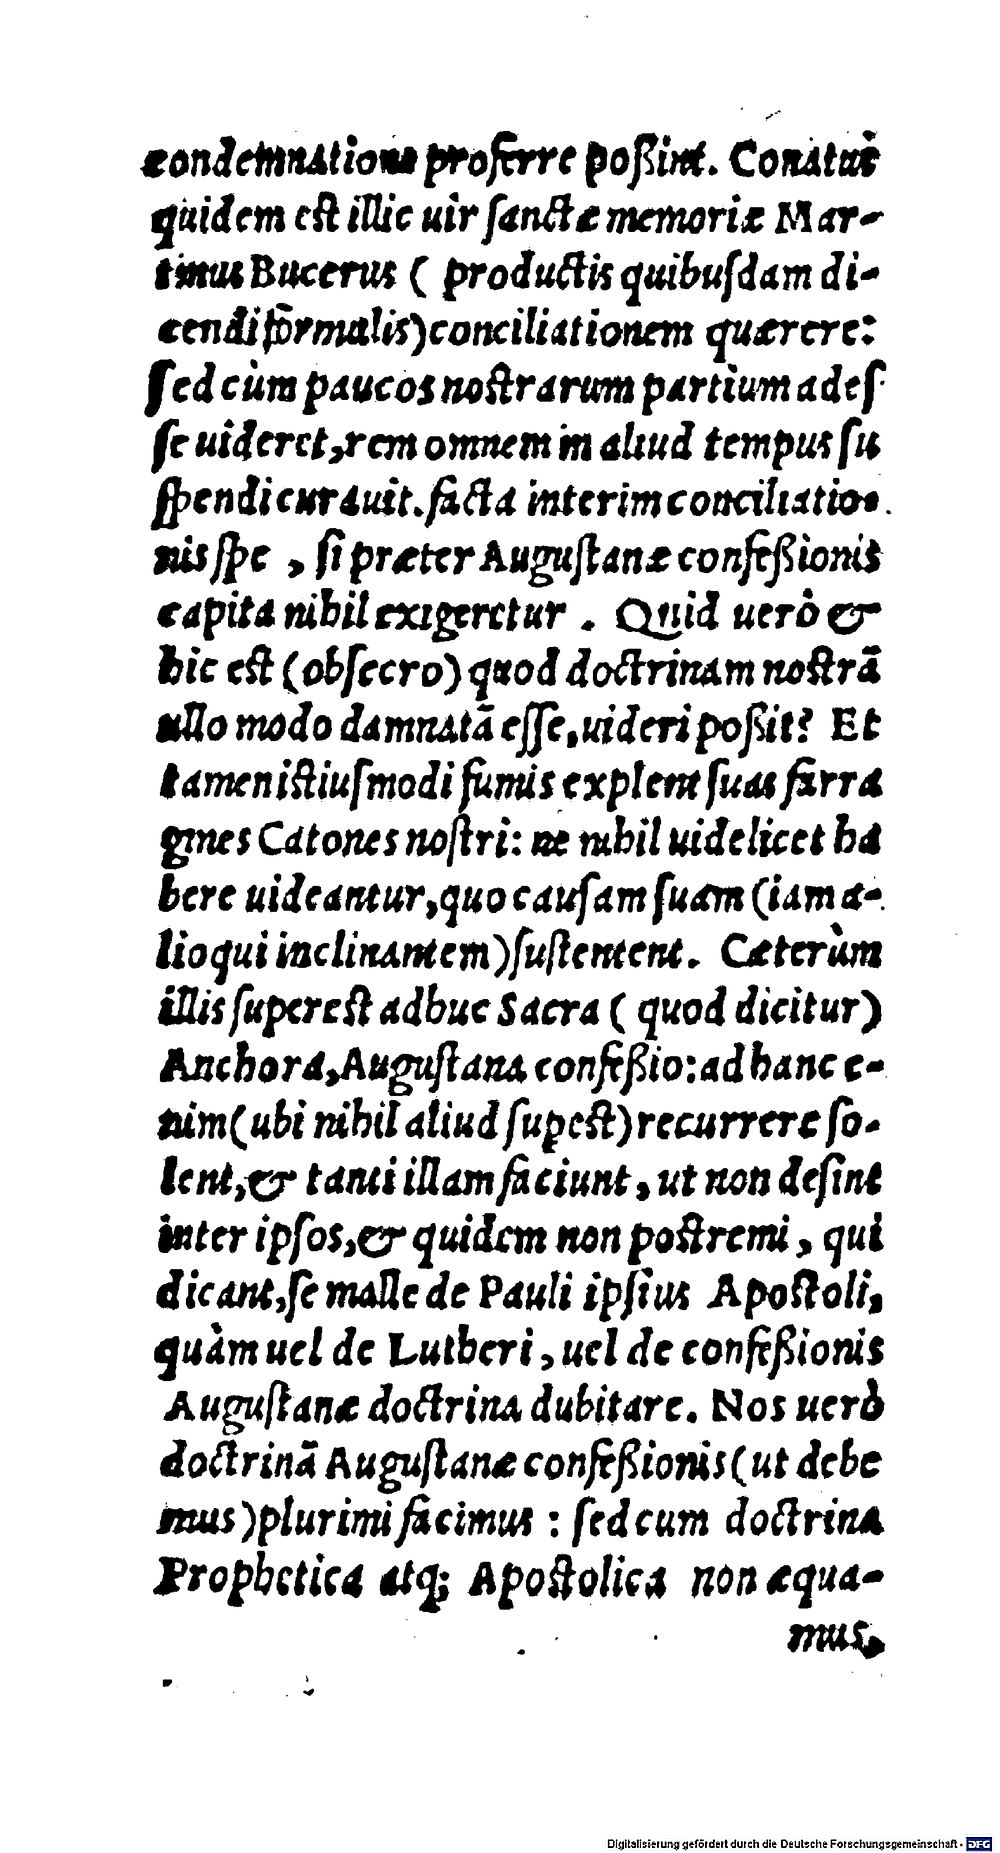 condemnatione proferre poßint. Conatus
quidem est illic uir sanctæ memoriæ Mar-
tinus Bucerus ( productis quibusdam di-
cendi formulis) conciliationem quærere:
Sed cùm paucos nostrarum partium ades
se uideret, rem omnem in aliud tempus su
spendi curauit. facta interim conciliatio-
nis spe , si præter Augustanæ confeßionis
capita nihil exigeretur . Quid uerò &
hic est (obsecro) quod doctrinam nostrã
ullo modo damnatã esse, uideri poßit? Et
tamen istiusmodi fumis explent suas farra
gines Catones nostri: ne nihil uidelicet ha
bere uideantur, quo causam suam (iam a-
lioqui inclinantem) sustentent. Cæterùm
illis superest adhuc Sacra ( quod dicitur)
Anchora, Augustana confeßio: ad hanc e-
nim (ubi nihil aliud supest) recurrere so-
lent, & tanti illam faciunt, ut non desint
inter ipsos, & quidem non postremi, qui
dicant, se malle de Pauli ipsius Apostoli,
quàm uel de Lutheri, uel de confeßionis
Augustanæ doctrina dubitare. Nos uerò
doctrinã Augustanæ confeßionis (ut debe
mus) plurimi facimus : sed cum doctrina
Prophetica atq; Apostolica non æqua-
mus,
Digitalisierung gefördert durch die Deutsche Forschungsgemeinschaft - DFG